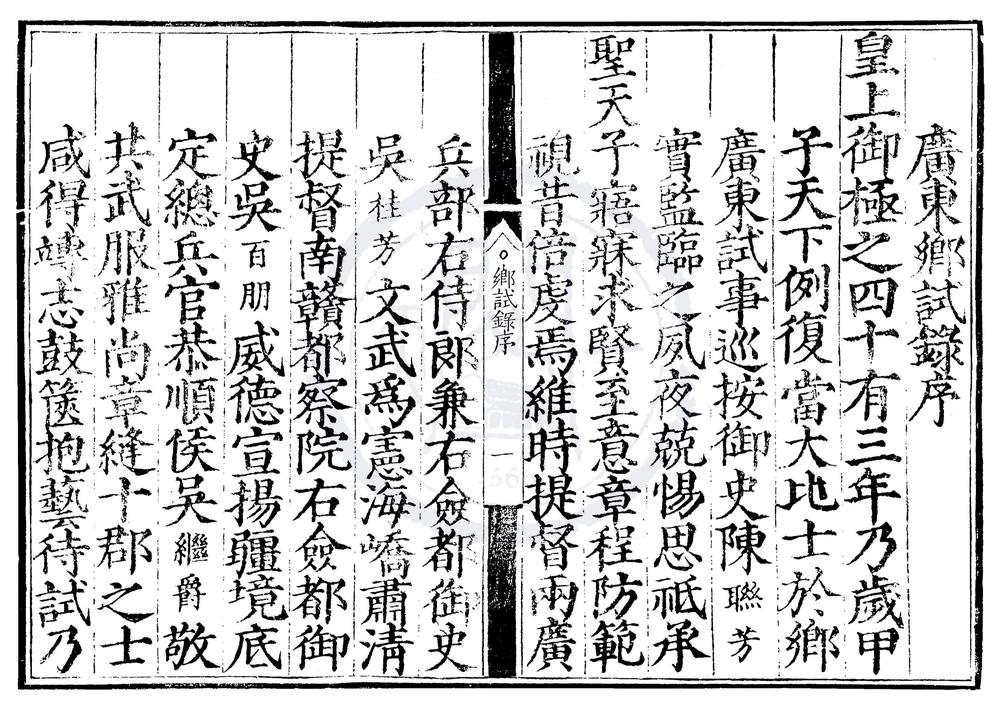 廣東鄉試錄序
皇上御極之四十有三年乃歲甲
子天下例復當大比士於鄉
廣東試事巡按御史陳聯芳
實監臨之夙夜兢惕思祗承
聖天子寤寐求賢至意章程防範
視昔倍虔焉維時提督兩廣
鄉試錄序
一
兵部右侍郎兼右僉都御史
吳桂芳文武爲憲海嶠肅清
提督南贛都察院右僉都御
史吳百朋威德宣揚疆境底
定總兵官恭順侯吳繼爵敬
共武服雅尚章縫十郡之士
咸得專志鼓篋抱藝待試乃